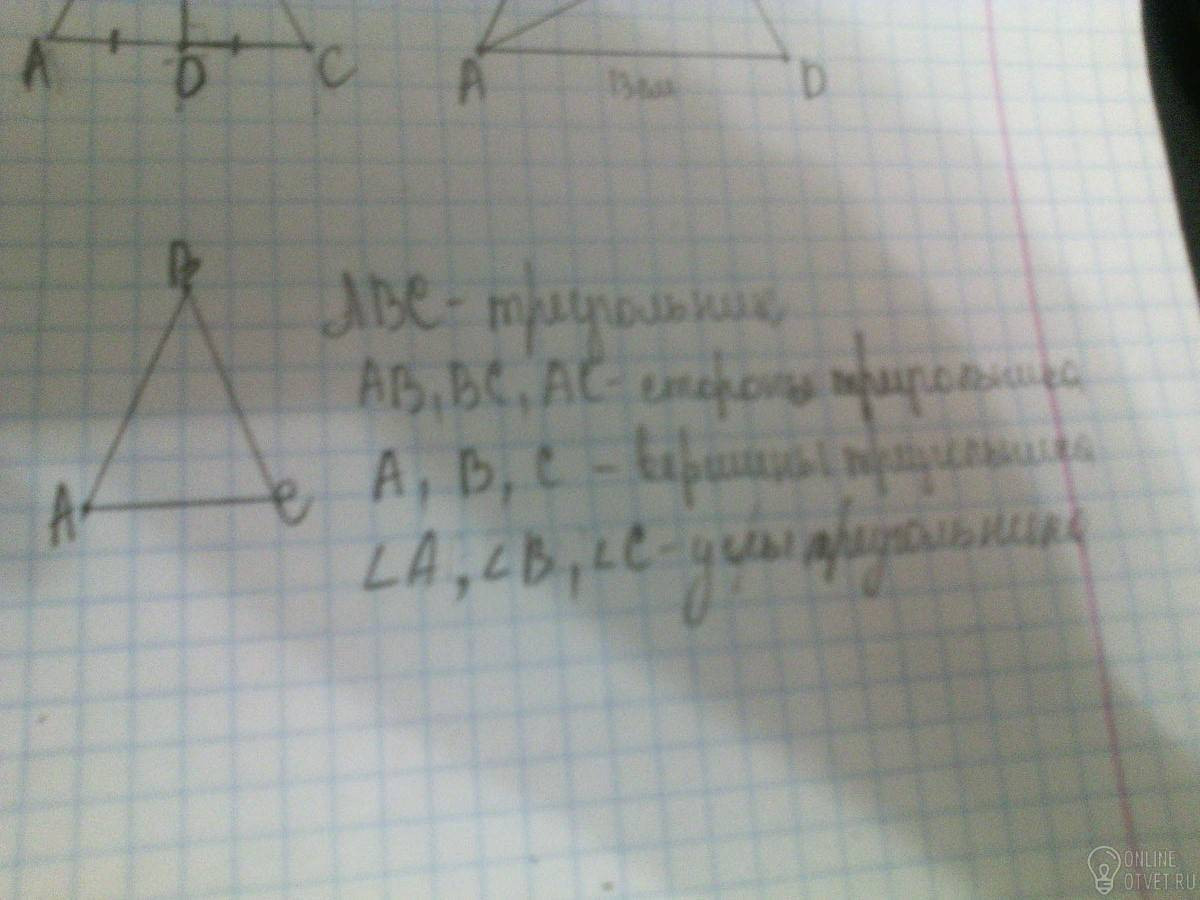 A D C A D
B
A C
ABC - треугольник
AB, BC, AC - стороны треугольника
A, B, C - вершины треугольника
∠A, ∠B, ∠C - углы треугольника
ONLINE
OTVET.RU